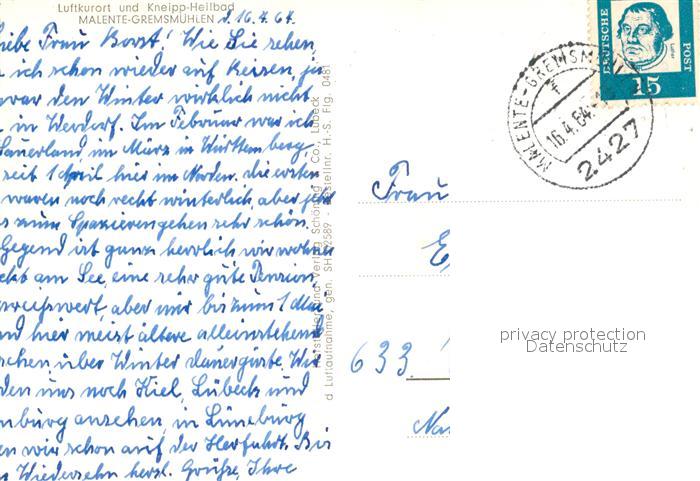 Luftkurort und Kneipp-Heilbad
MALENTE-GREMSMÜHLEN d. 16.4.64.
iebe Frau Borst! Wie Sie sehen,
n ich schon wieder auf Reisen, ja
war den Winter wirklich nicht
l in Werdorf. Im Februar war ich
Sauerland, im März in Württemberg,
seit 1. April hier im Norden. Die ersten
waren noch recht winterlich, aber je
s zum Spazierengehen sehr schön.
Gegend ist ganz herrlich, wir wohnen
ekt am See, eine sehr gute Pension,
preiswert, aber nur bis zum 1. Mai
nd hier meist ältere alleinstehende
schen über Winter Dauergäste. Wir
den uns noch Kiel, Lübeck und
nburg ansehen, in Lüneburg
en wir schon auf der Herfahrt. Bis
n Wiedersehn herzl. Grüße, Ihre
Herstellung und Verlag Schöning & Co., Lübeck
d Luftaufnahme, gen. SH 2589 - Bestellnr. H.-S. Flg. 0481
DEUTSCHE
POST
Luther
15
MALENTE-GREMSM
16.4.64.
2427
Frau
633
privacy protection
Datenschutz